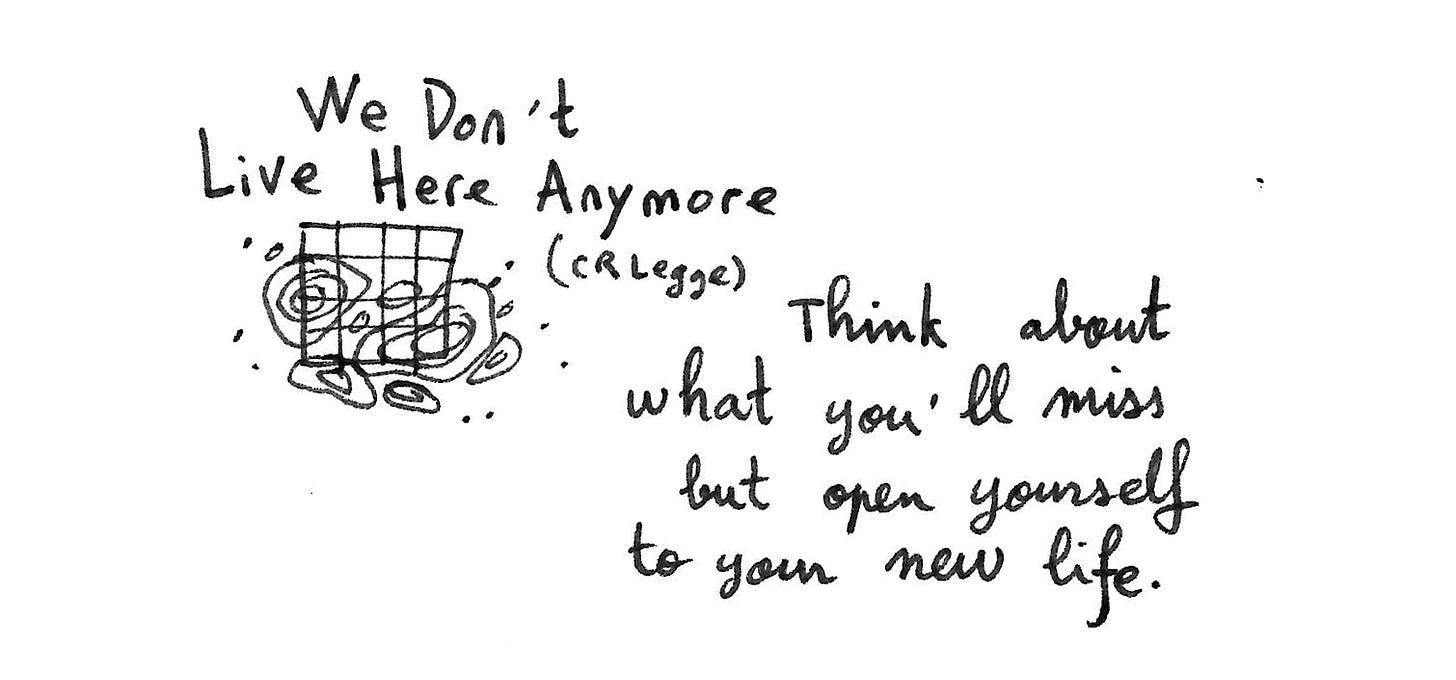 We Don't
Live Here Anymore
(CR Legge)
Think about
what you'll miss
but open yourself
to your new life.